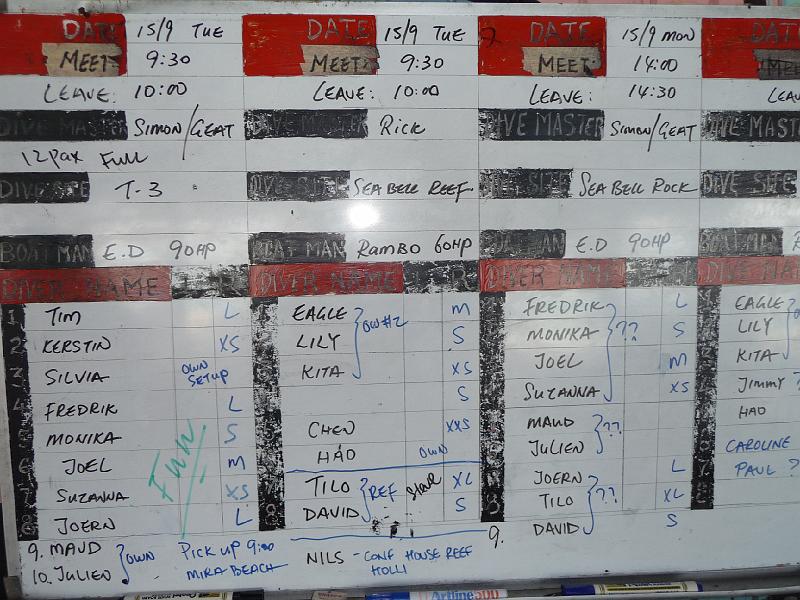 DATE 15/9 TUE
MEET: 9:30
LEAVE: 10:00
DIVE MASTER SIMON/GEAT
12 pax Full
DIVE SITE T-3
BOAT MAN E.D 90HP
DIVER NAME
1 TIM L
2 KERSTIN XS
3 SILVIA OWN SETUP
4 FREDRIK L
5 MONIKA S
6 JOEL M
7 SUZANNA XS
8 JOERN L
9. MAUD
10. JULIEN } OWN
PICK UP 9:00
MIRA BEACH
DATE 15/9 TUE
MEET: 9:30
LEAVE: 10:00
DIVE MASTER RICK
DIVE SITE SEA BELL REEF
BOAT MAN RAMBO 60HP
DIVER NAME
EAGLE M
LILY } OW#2 S
KITA XS
S
CHEN XXS
HAO OWN
TILO } REF XL
DAVID S
NILS - CONF HOUSE REEF
HOLLI
DATE 15/9 MON
MEET: 14:00
LEAVE: 14:30
DIVE MASTER SIMON/GEAT
DIVE SITE SEA BELL ROCK
BOAT MAN E.D 90HP
DIVER NAME
FREDRIK L
MONIKA } ?? S
JOEL M
SUZANNA XS
MAUD
JULIEN } ??
JOERN L
TILO } ?? XL
9. DAVID S
DATE
MEET
LEAVE
DIVE MASTER
DIVE SITE
BOAT MAN
DIVE NA
EAGLE
LILY
KITA
JIMMY ?
HAO
CAROLINE
PAUL ?
Artline 500